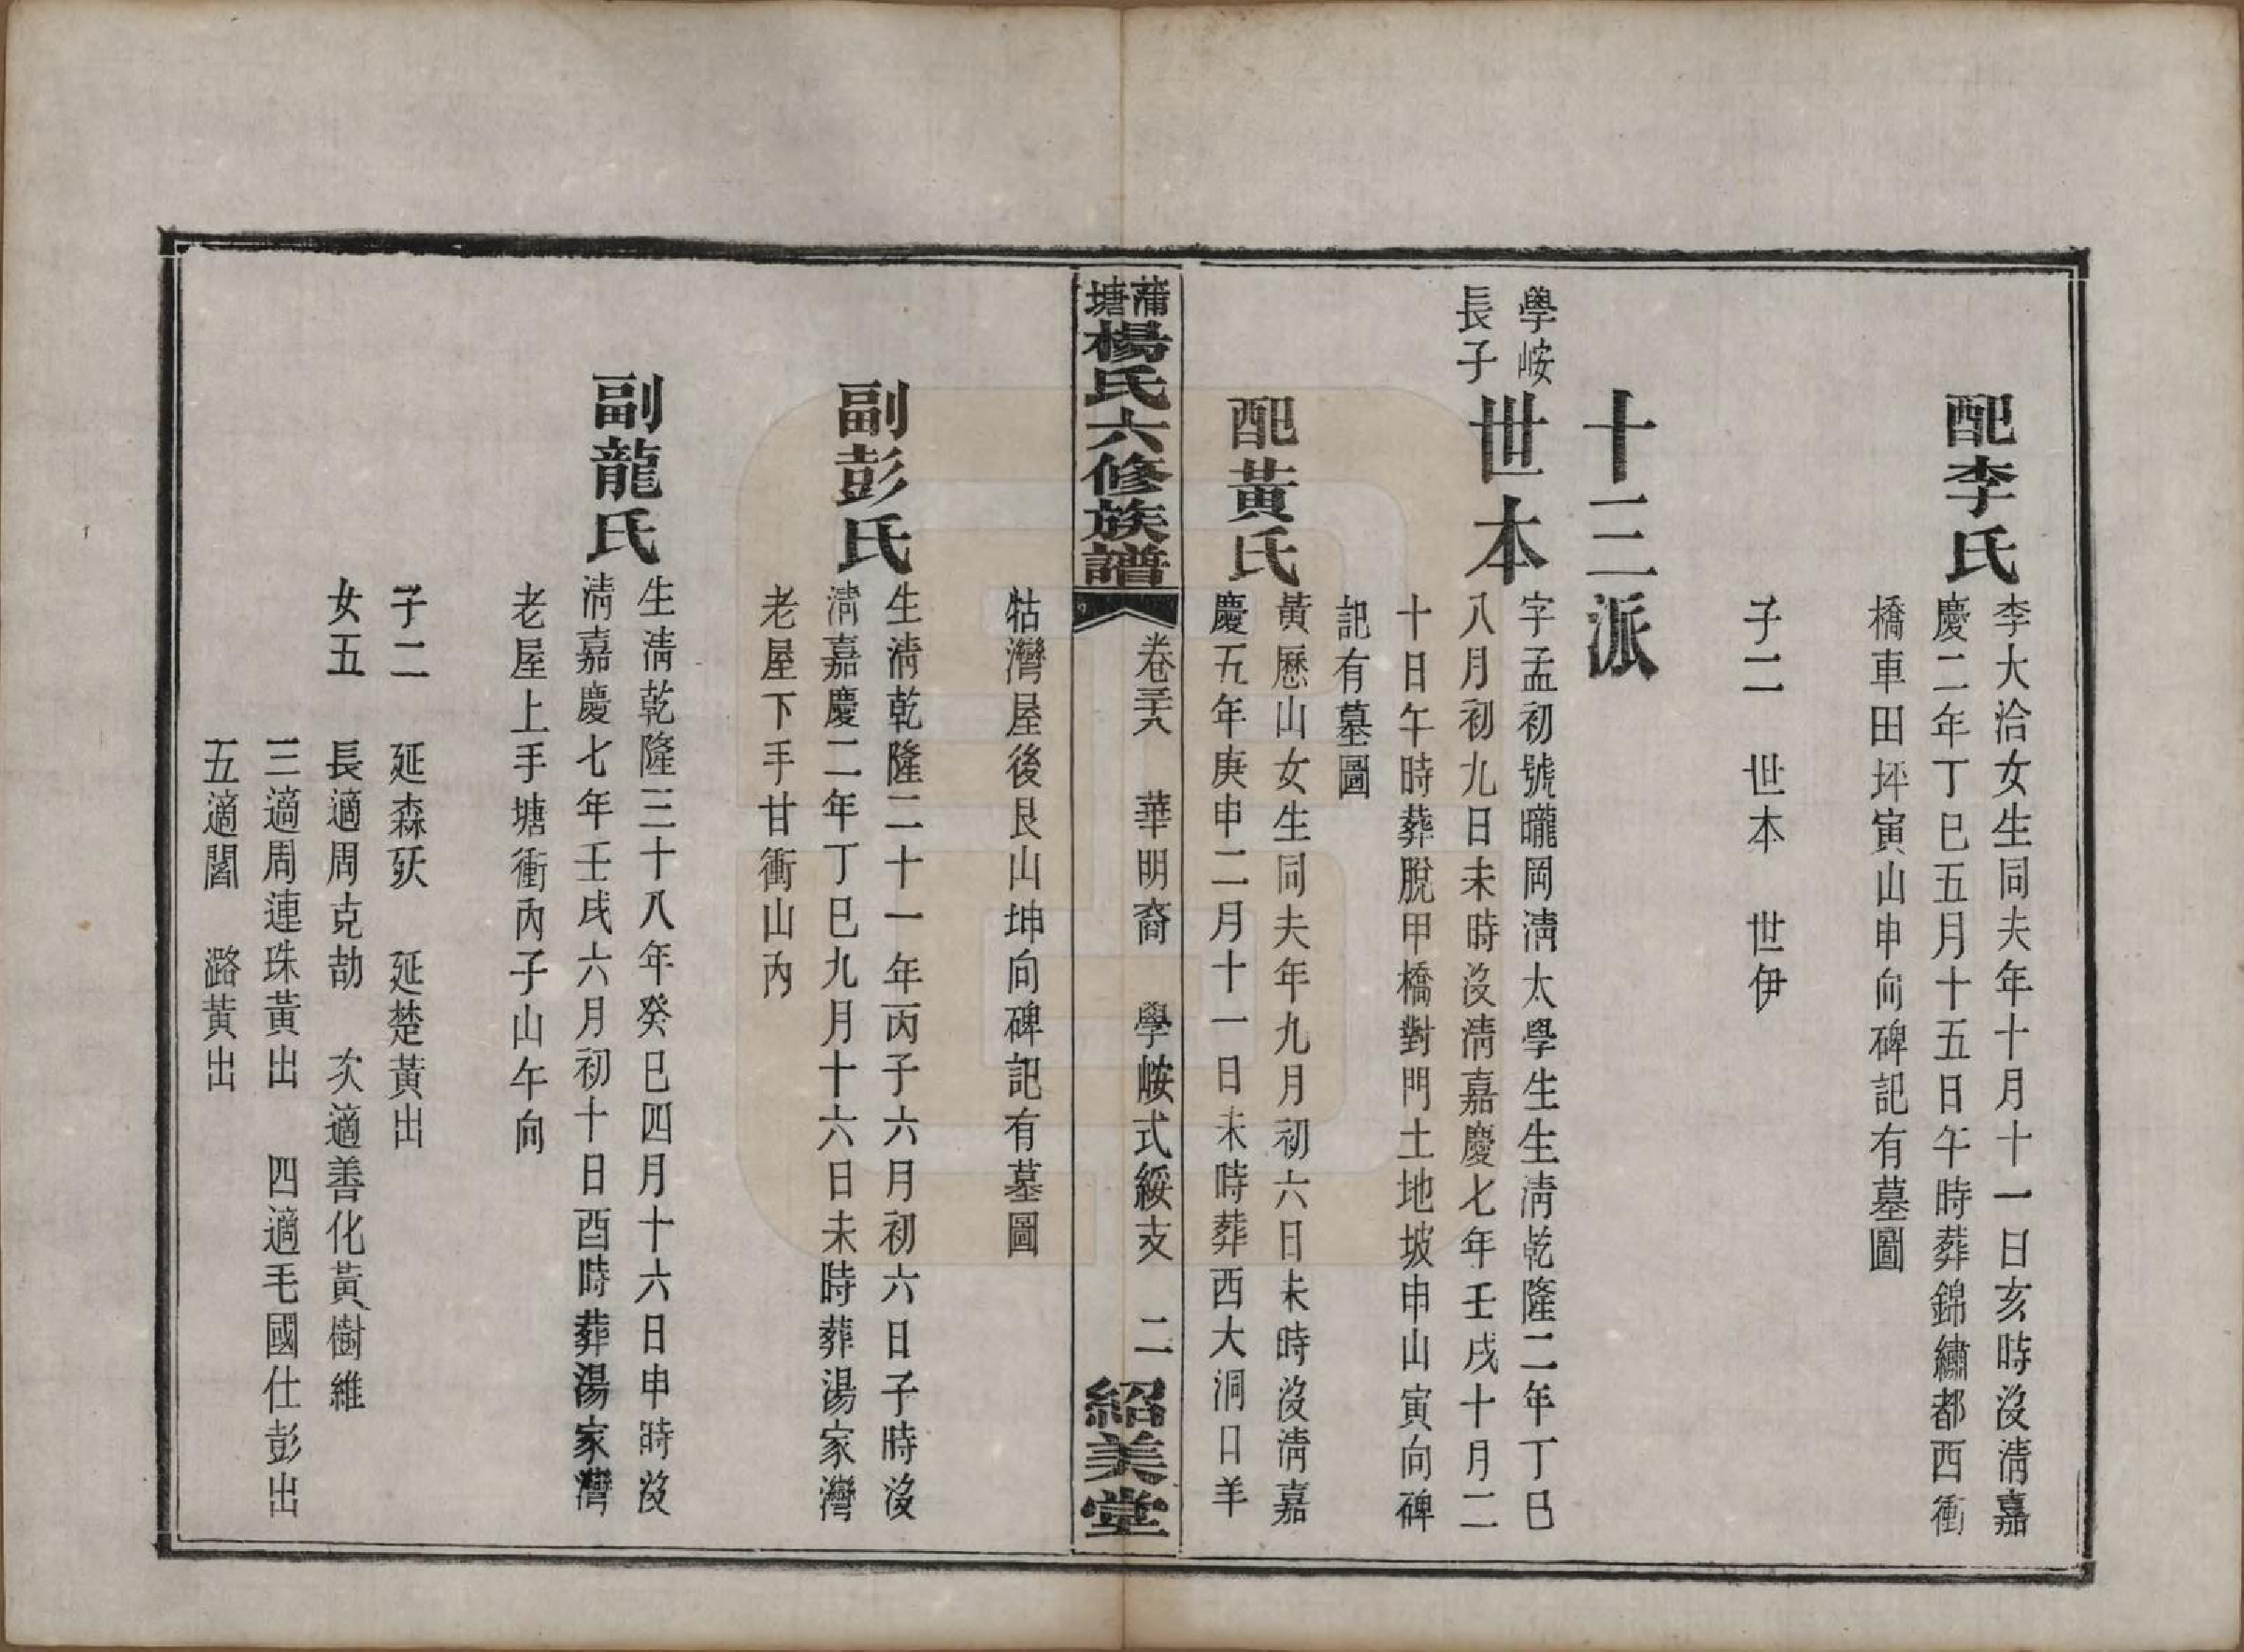 配李氏
李大洽女生同夫年十月十一日亥時沒淸嘉
慶二年丁巳五月十五日午時葬錦繡都西衝
橋車田坪寅山申向碑記有墓圖
子二 世本 世伊
十三派
學峖
長子
世本
字孟初號曨岡淸太學生生淸乾隆二年丁巳
八月初九日未時沒淸嘉慶七年壬戌十月二
十日午時葬脫甲橋對門土地坡申山寅向碑
記有墓圖
配黃氏
黃歷山女生同夫年九月初六日未時沒淸嘉
慶五年庚申二月十一日未時葬西大洞口羊
蒲塘楊氏六修族譜
卷三六 華明裔 學峖式綏支 二
紹美堂
牯灣屋後艮山坤向碑記有墓圖
副彭氏
生淸乾隆二十一年丙子六月初六日子時沒
淸嘉慶二年丁巳九月十六日未時葬湯家灣
老屋下手甘衝山內
副龍氏
生淸乾隆三十八年癸巳四月十六日申時沒
淸嘉慶七年壬戌六月初十日酉時葬湯家灣
老屋上手塘衝內子山午向
子二 延森殀 延楚黃出
女五 長適周克劼 次適善化黃樹維
三適周連珠黃出 四適毛國仕彭出
五適閻 潞黃出